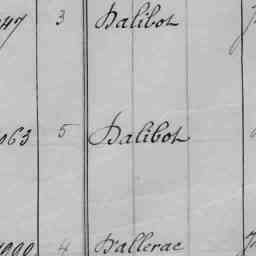 47 3 Dalibot
063 5 Dalibot
4 Dallerac